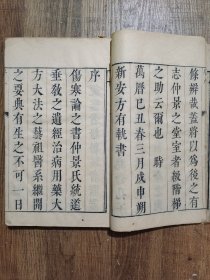 條辨哉蓋將以為後之有
志仲景之堂室者級階梯
之助云爾也　時
萬曆己丑春三月戊申朔
新安方有執書
序
傷寒論之書仲景氏統道
垂敎之遺經治病用藥大
方大法之藝祖醫系繼開
之要典有生之不可一日